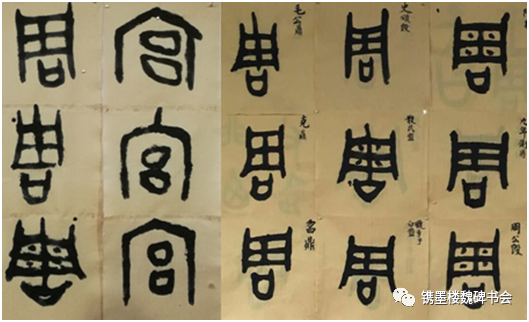 周 宮 周 周 周
毛公鼎
史頌𣪘
周 宮 周 周 周
克鼎
散氏盤
周 宮 周 周 周
舀鼎
周公𣪘
镌墨楼魏碑书会